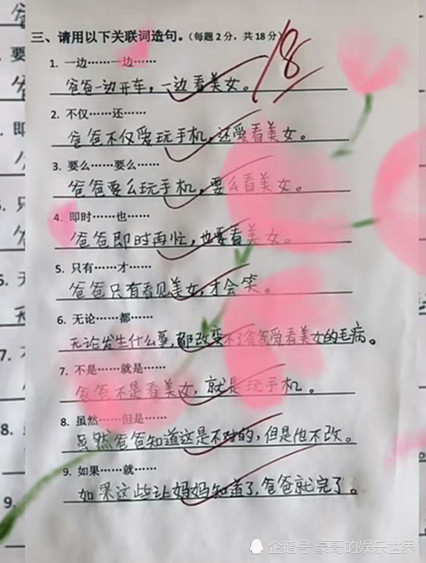 三、请用以下关联词造句。(每题2分，共18分)
18
1. 一边……一边……
爸爸一边开车，一边看美女。
2. 不仅……还……
爸爸不仅爱玩手机，还爱看美女。
3. 要么……要么……
爸爸要么玩手机，要么看美女。
4. 即时……也……
爸爸即时再忙，也要看美女。
5. 只有……才……
爸爸只有看见美女，才会笑。
6. 无论……都……
无论发生什么事，都改变不了爸爸爱看美女的毛病。
7. 不是……就是……
爸爸不是看美女，就是玩手机。
8. 虽然……但是……
虽然爸爸知道这是不对的，但是他不改。
9. 如果……就……
如果这些让妈妈知道了，爸爸就完了。
企鹅号 豪哥的娱乐世界